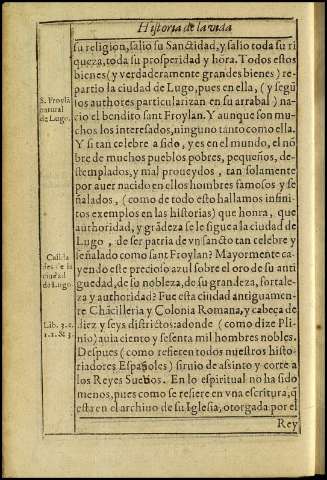 Historia de la vida
su religion, salio su Sanctidad, y salio toda su ri
queza, toda su prosperidad y hõra. Todos estos
bienes ( y verdaderamente grandes bienes ) re-
partio la ciudad de Lugo, pues en ella, ( y segũ
los authores particularizan en su arrabal ) na-
cio el bendito sant Froylan. Y aunque son mu-
chos los interesados, ninguno tanto como ella.
Y si tan celebre a sido, y es en el mundo, el nõ
bre de muchos pueblos pobres, pequeños, de-
stemplados, y mal proueydos, tan solamente
por auer nacido en ellos hombres famosos y se
ñalados, ( como de todo esto hallamos infini-
tos exemplos en las historias) que honra, que
authoridad, y grãdeza se le sigue a la ciudad de
Lugo, de ser patria de vn sancto tan celebre y
señalado como sant Froylan? Mayormente ca-
yendo este precioso azul sobre el oro de su anti
guedad, de su nobleza, de su grandeza, fortale-
za y authoridad? Fue esta ciudad antiguamen-
te Chãcilleria y Colonia Romana, y cabeça de
diez y seys districtos: adonde ( como dize Pli-
nio) auia ciento y sesenta mil hombres nobles.
Despues ( como refieren todos nuestros histo-
riadores Españoles ) siruio de asinto y corte a
los Reyes Sueuos. En lo espiritual no ha sido
menos, pues como se refiere en vna escritura, q̃
esta en el archiuo de su Iglesia, otorgada por el
Rey
S. Froylã
natural
de Lugo.
des de la
ciudad
de Lugo.
Lib. 3. c.